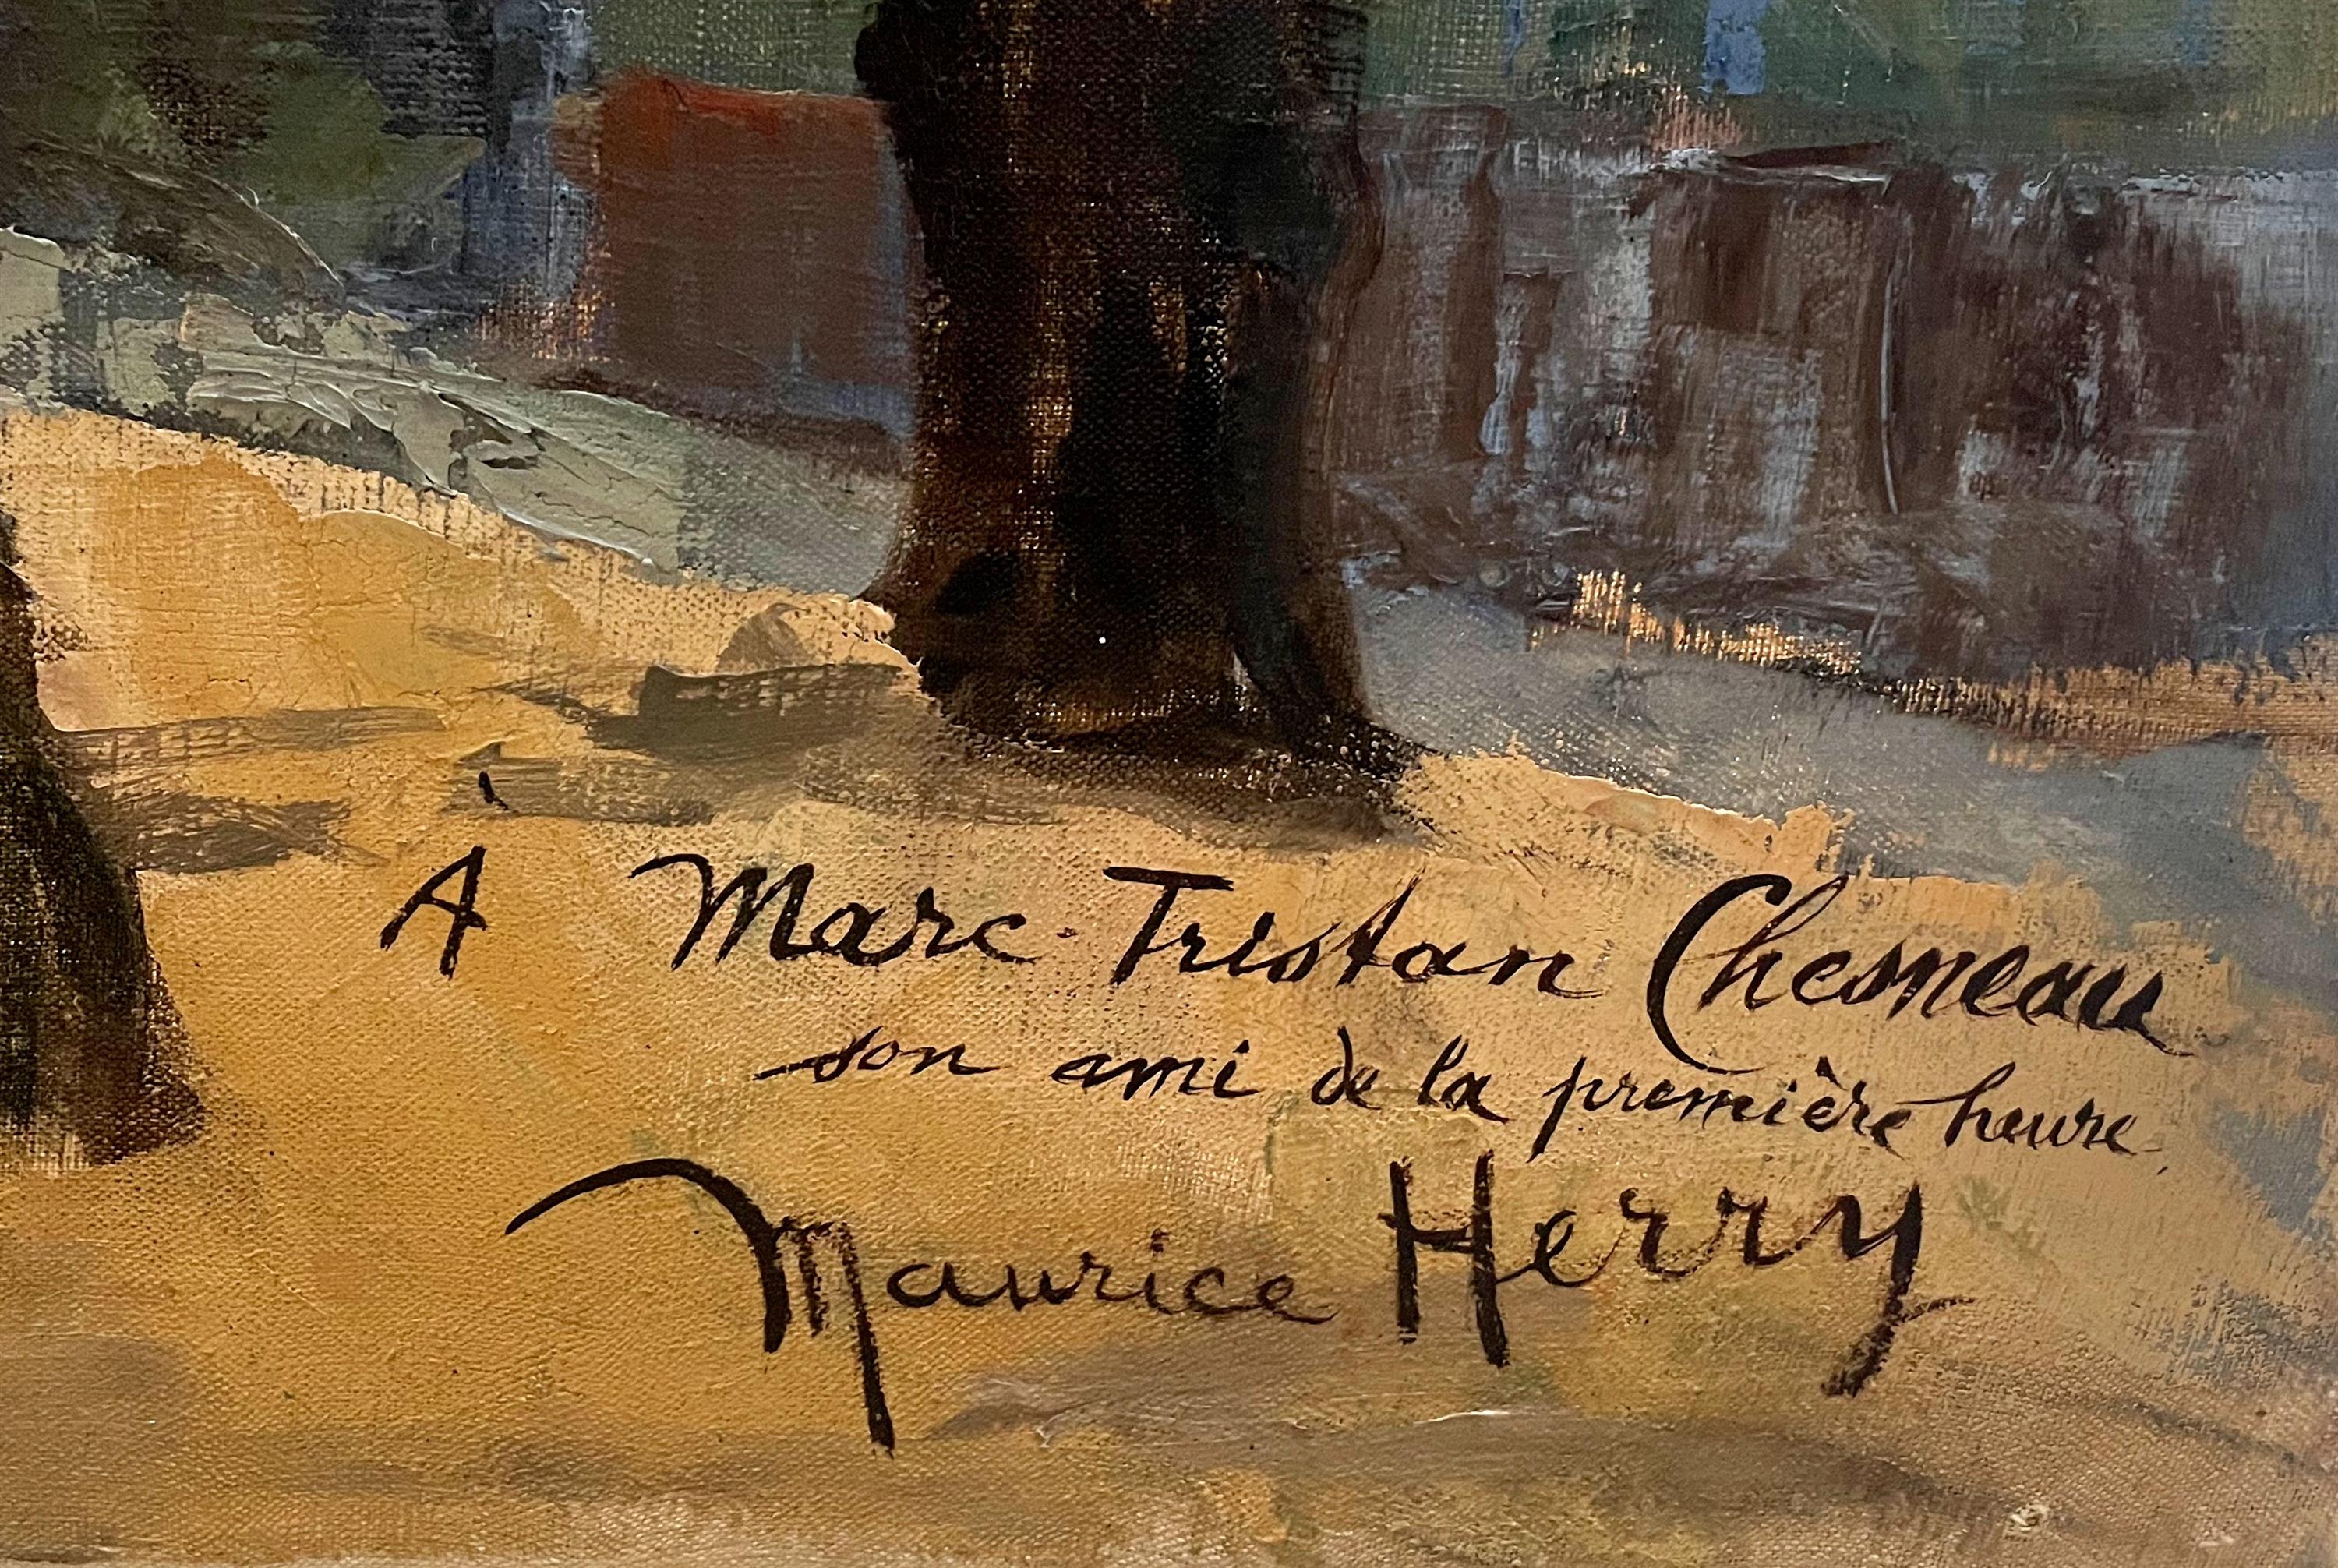 À Marc-Tristan Chesneau
son ami de la première heure.
Maurice Herry